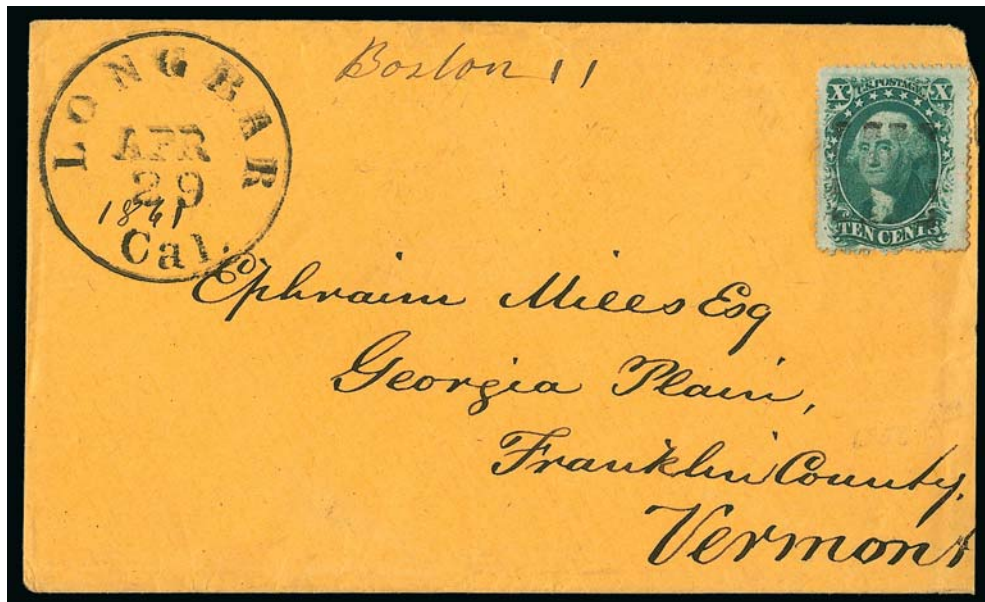 LONG BAR
APR
29
1861
Cal.
Boston 11
X U.S. POSTAGE X
TEN CENTS
Ephraim Mills Esq
Georgia Plain,
Franklin County,
Vermont